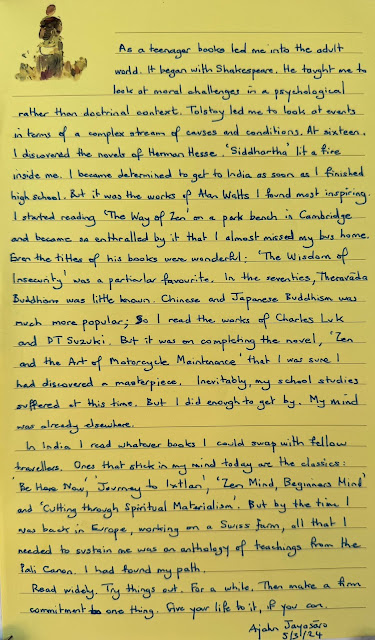 As a teenager books led me into the adult
world. It began with Shakespeare. He taught me to
look at moral challenges in a psychological
rather than doctrinal context. Tolstoy led me to look at events
in terms of a complex stream of causes and conditions. At sixteen,
I discovered the novels of Herman Hesse. 'Siddhartha' lit a fire
inside me. I became determined to get to India as soon as I finished
high school. But it was the works of Alan Watts I found most inspiring.
I started reading 'The Way of Zen' on a park bench in Cambridge
and became so enthralled by it that I almost missed my bus home.
Even the titles of his books were wonderful: 'The Wisdom of
Insecurity' was a particular favourite. In the seventies, Theravāda
Buddhism was little known. Chinese and Japanese Buddhism was
much more popular; so I read the works of Charles Luk
and DT Suzuki. But it was on completing the novel, 'Zen
and the Art of Motorcycle Maintenance' that I was sure I
had discovered a masterpiece. Inevitably, my school studies
suffered at this time. But I did enough to get by. My mind
was already elsewhere.
In India I read whatever books I could swap with fellow
travellers. Ones that stick in my mind today are the classics:
'Be Here Now,' 'Journey to Ixtlan', 'Zen Mind, Beginners Mind'
and 'Cutting through Spiritual Materialism'. But by the time I
was back in Europe, working on a Swiss farm, all that I
needed to sustain me was an anthology of teachings from the
Pali Canon. I had found my path.
Read widely. Try things out. For a while. Then make a firm
commitment to one thing. Give your life to it, if you can.
Ajahn Jayasāro
5/3/24